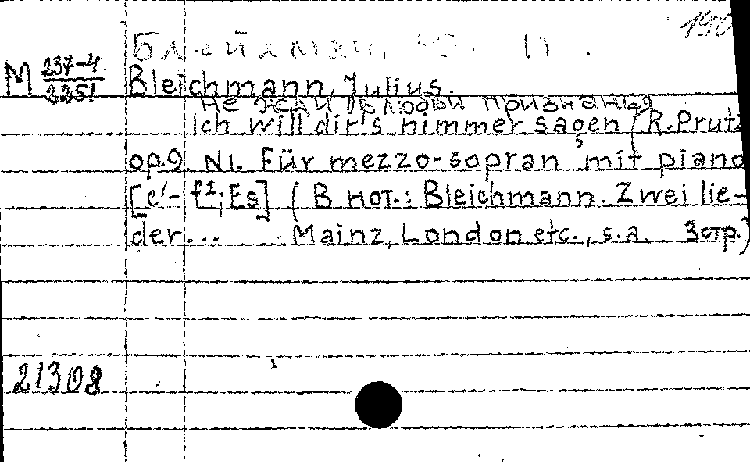 190
Блейхман, Ю. И.
М 237-4/3351
Bleichmann, Julius.
Не жди в любви признания
Ich will dir's nimmer sagen (R. Prutz
op.9 N1. Für mezzo-sopran mit piano
[c'-f²; Es] (В нот.: Bleichmann. Zwei lie-
der... Mainz, London etc., s.a. 3стр.)
21308